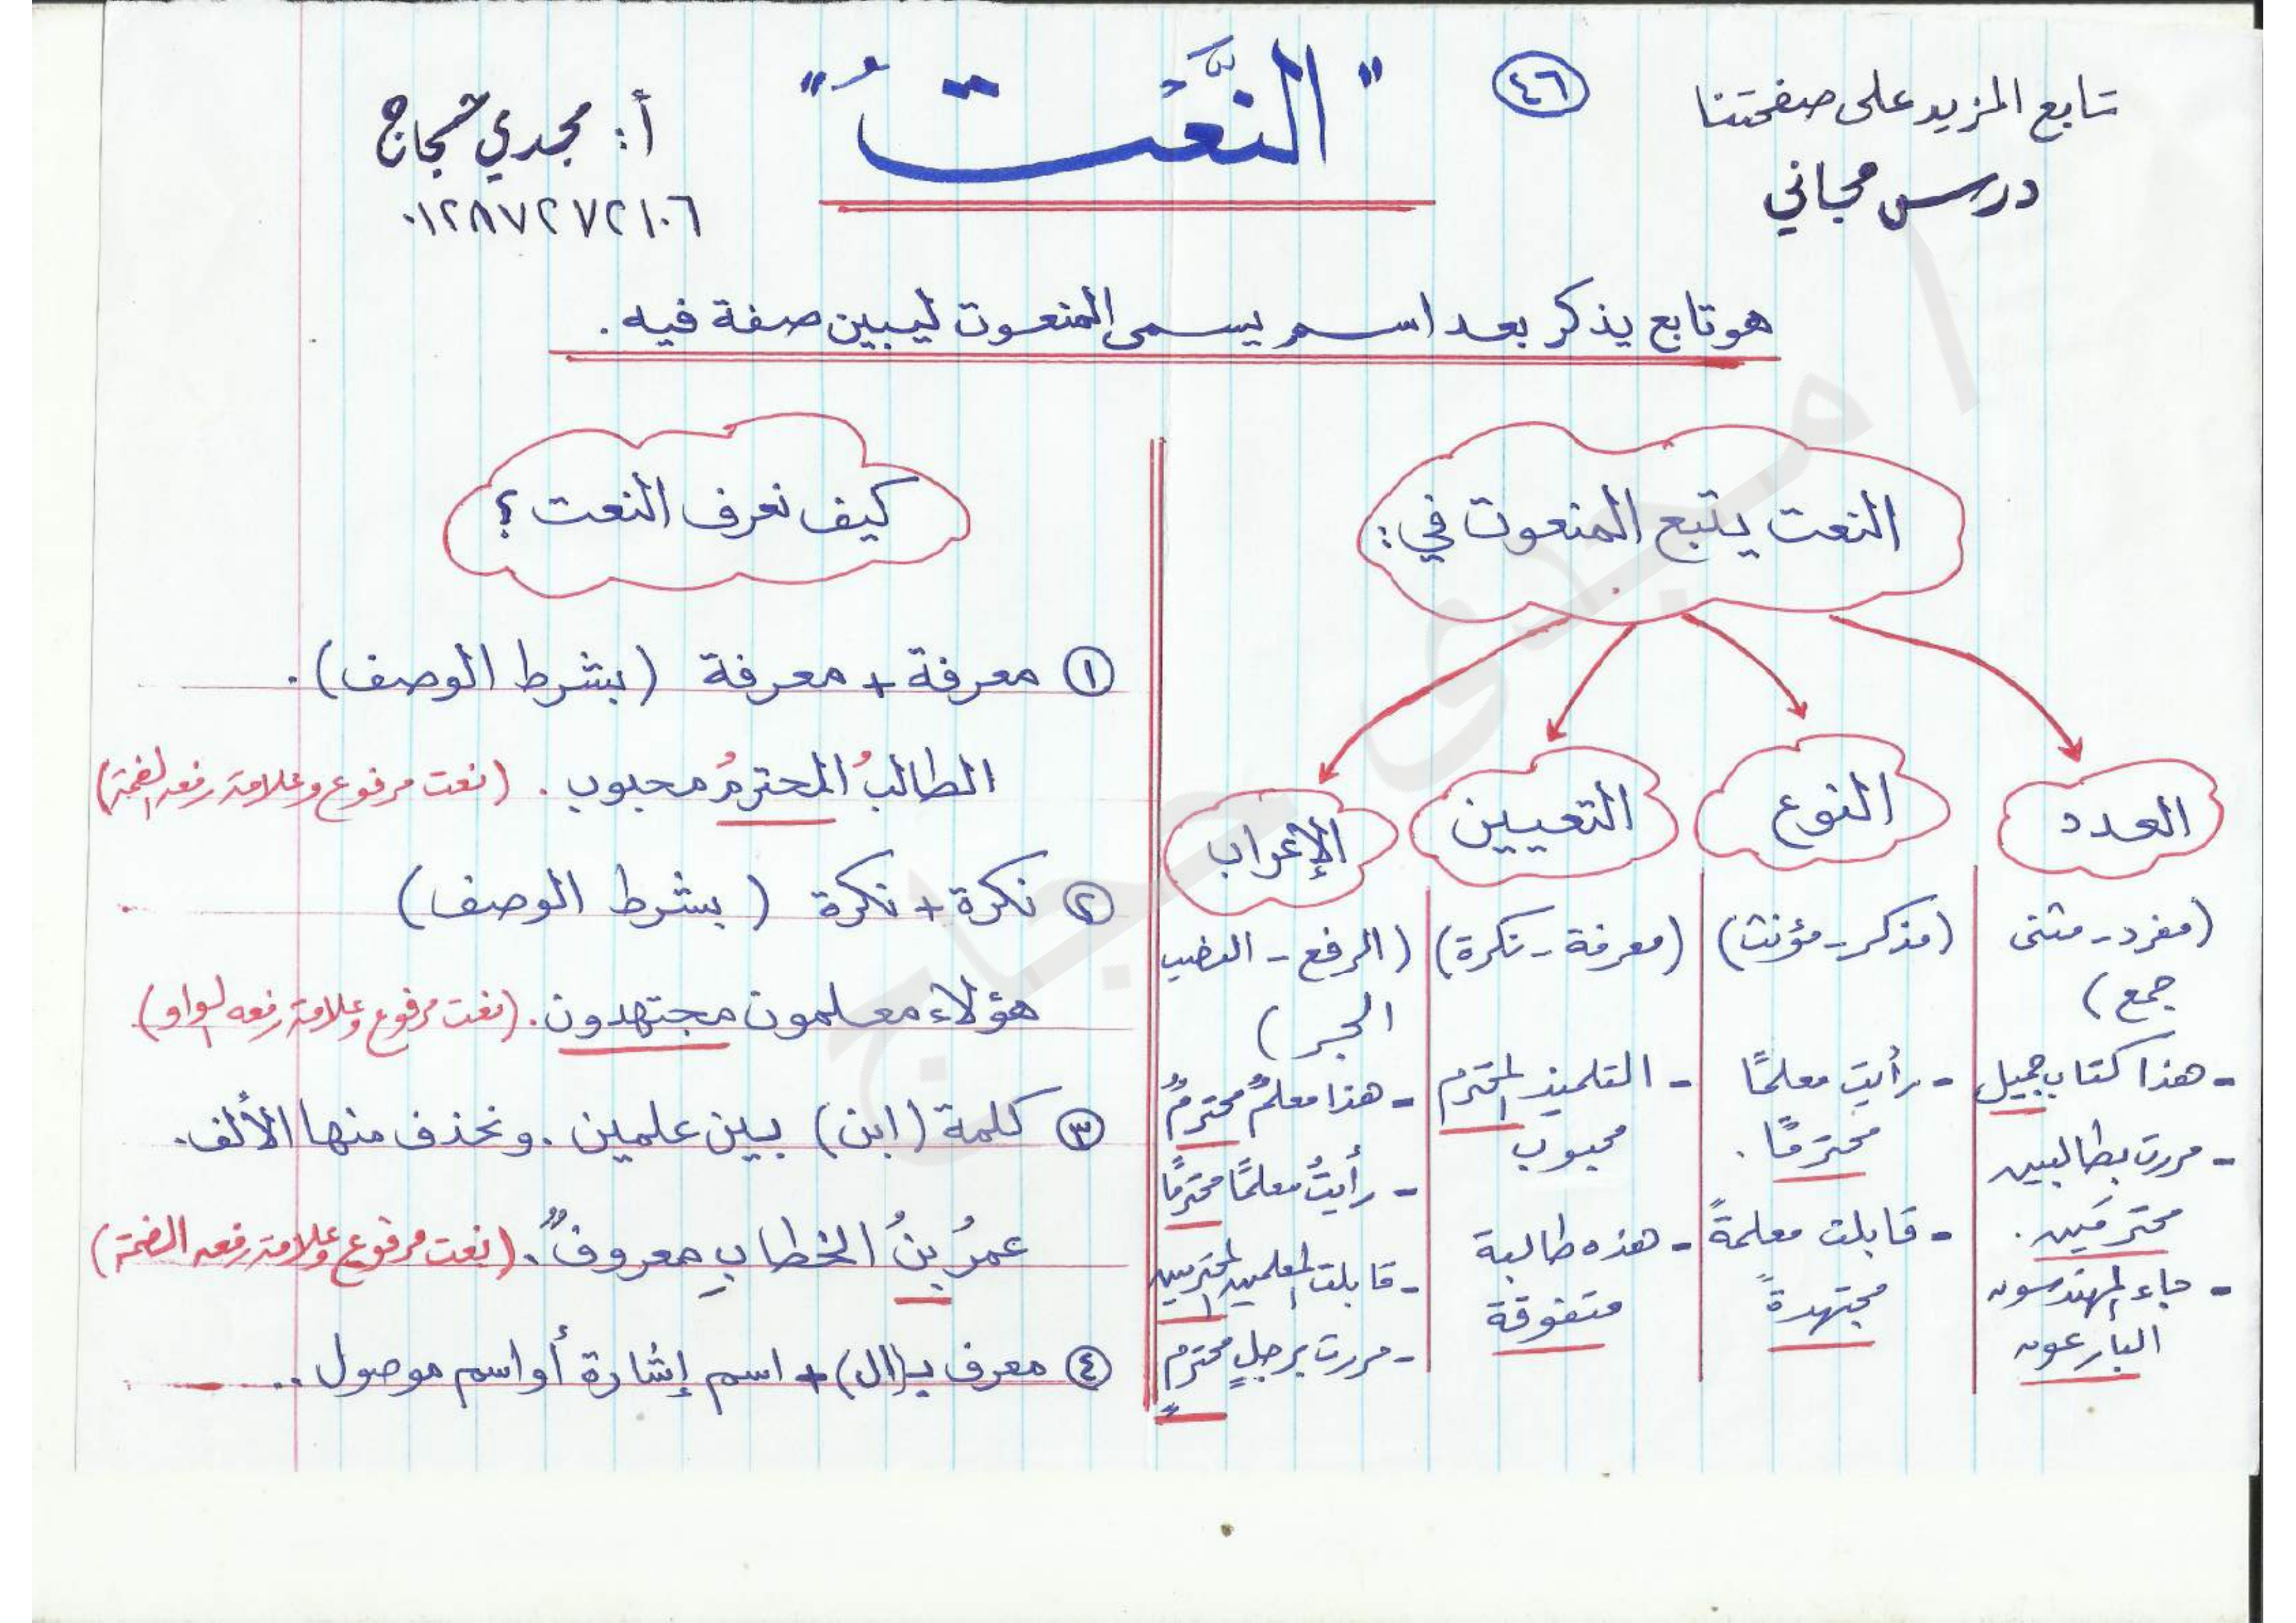 تابع المزيد على صفحتنا
درس مجاني
٤٦
"النَّعْتُ"
أ: مجدي حجاج
٠١٢٨٧٢٧٢١٠٦
هو تابع يذكر بعد اسم يسمى المنعوت ليبين صفة فيه.
النعت يتبع المنعوت في:
العدد
(مفرد - مثنى
جمع)
- هذا كتاب جميل
- مررت بطالبين
محترمَين.
- جاء المهندسون
البارعون
النوع
(مذكر - مؤنث)
- رأيت معلمًا
محترمًا.
- قابلت معلمةً
مجتهدةً
التعيين
(معرفة - نكرة)
- التلميذ المحترم
محبوب
- هذه طالبة
متفوقة
الإعراب
(الرفع - النصب
الجر)
- هذا معلمٌ محترمٌ
- رأيتُ معلمًا محترمًا
- قابلت المعلمين المحترمين
- مررت برجلٍ محترمٍ
كيف نعرف النعت؟
① معرفة + معرفة (بشرط الوصف).
الطالبُ المحترمُ محبوب. (نعت مرفوع وعلامة رفعه الضمة)
② نكرة + نكرة (بشرط الوصف)
هؤلاء معلمون مجتهدون. (نعت مرفوع وعلامة رفعه الواو)
③ كلمة (ابن) بين علمين. ونحذف منها الألف.
عمرُ بنُ الخطابِ معروفٌ. (نعت مرفوع وعلامة رفعه الضمة)
④ معرف بـ(ال) + اسم إشارة أو اسم موصول..
مجدى حجاج